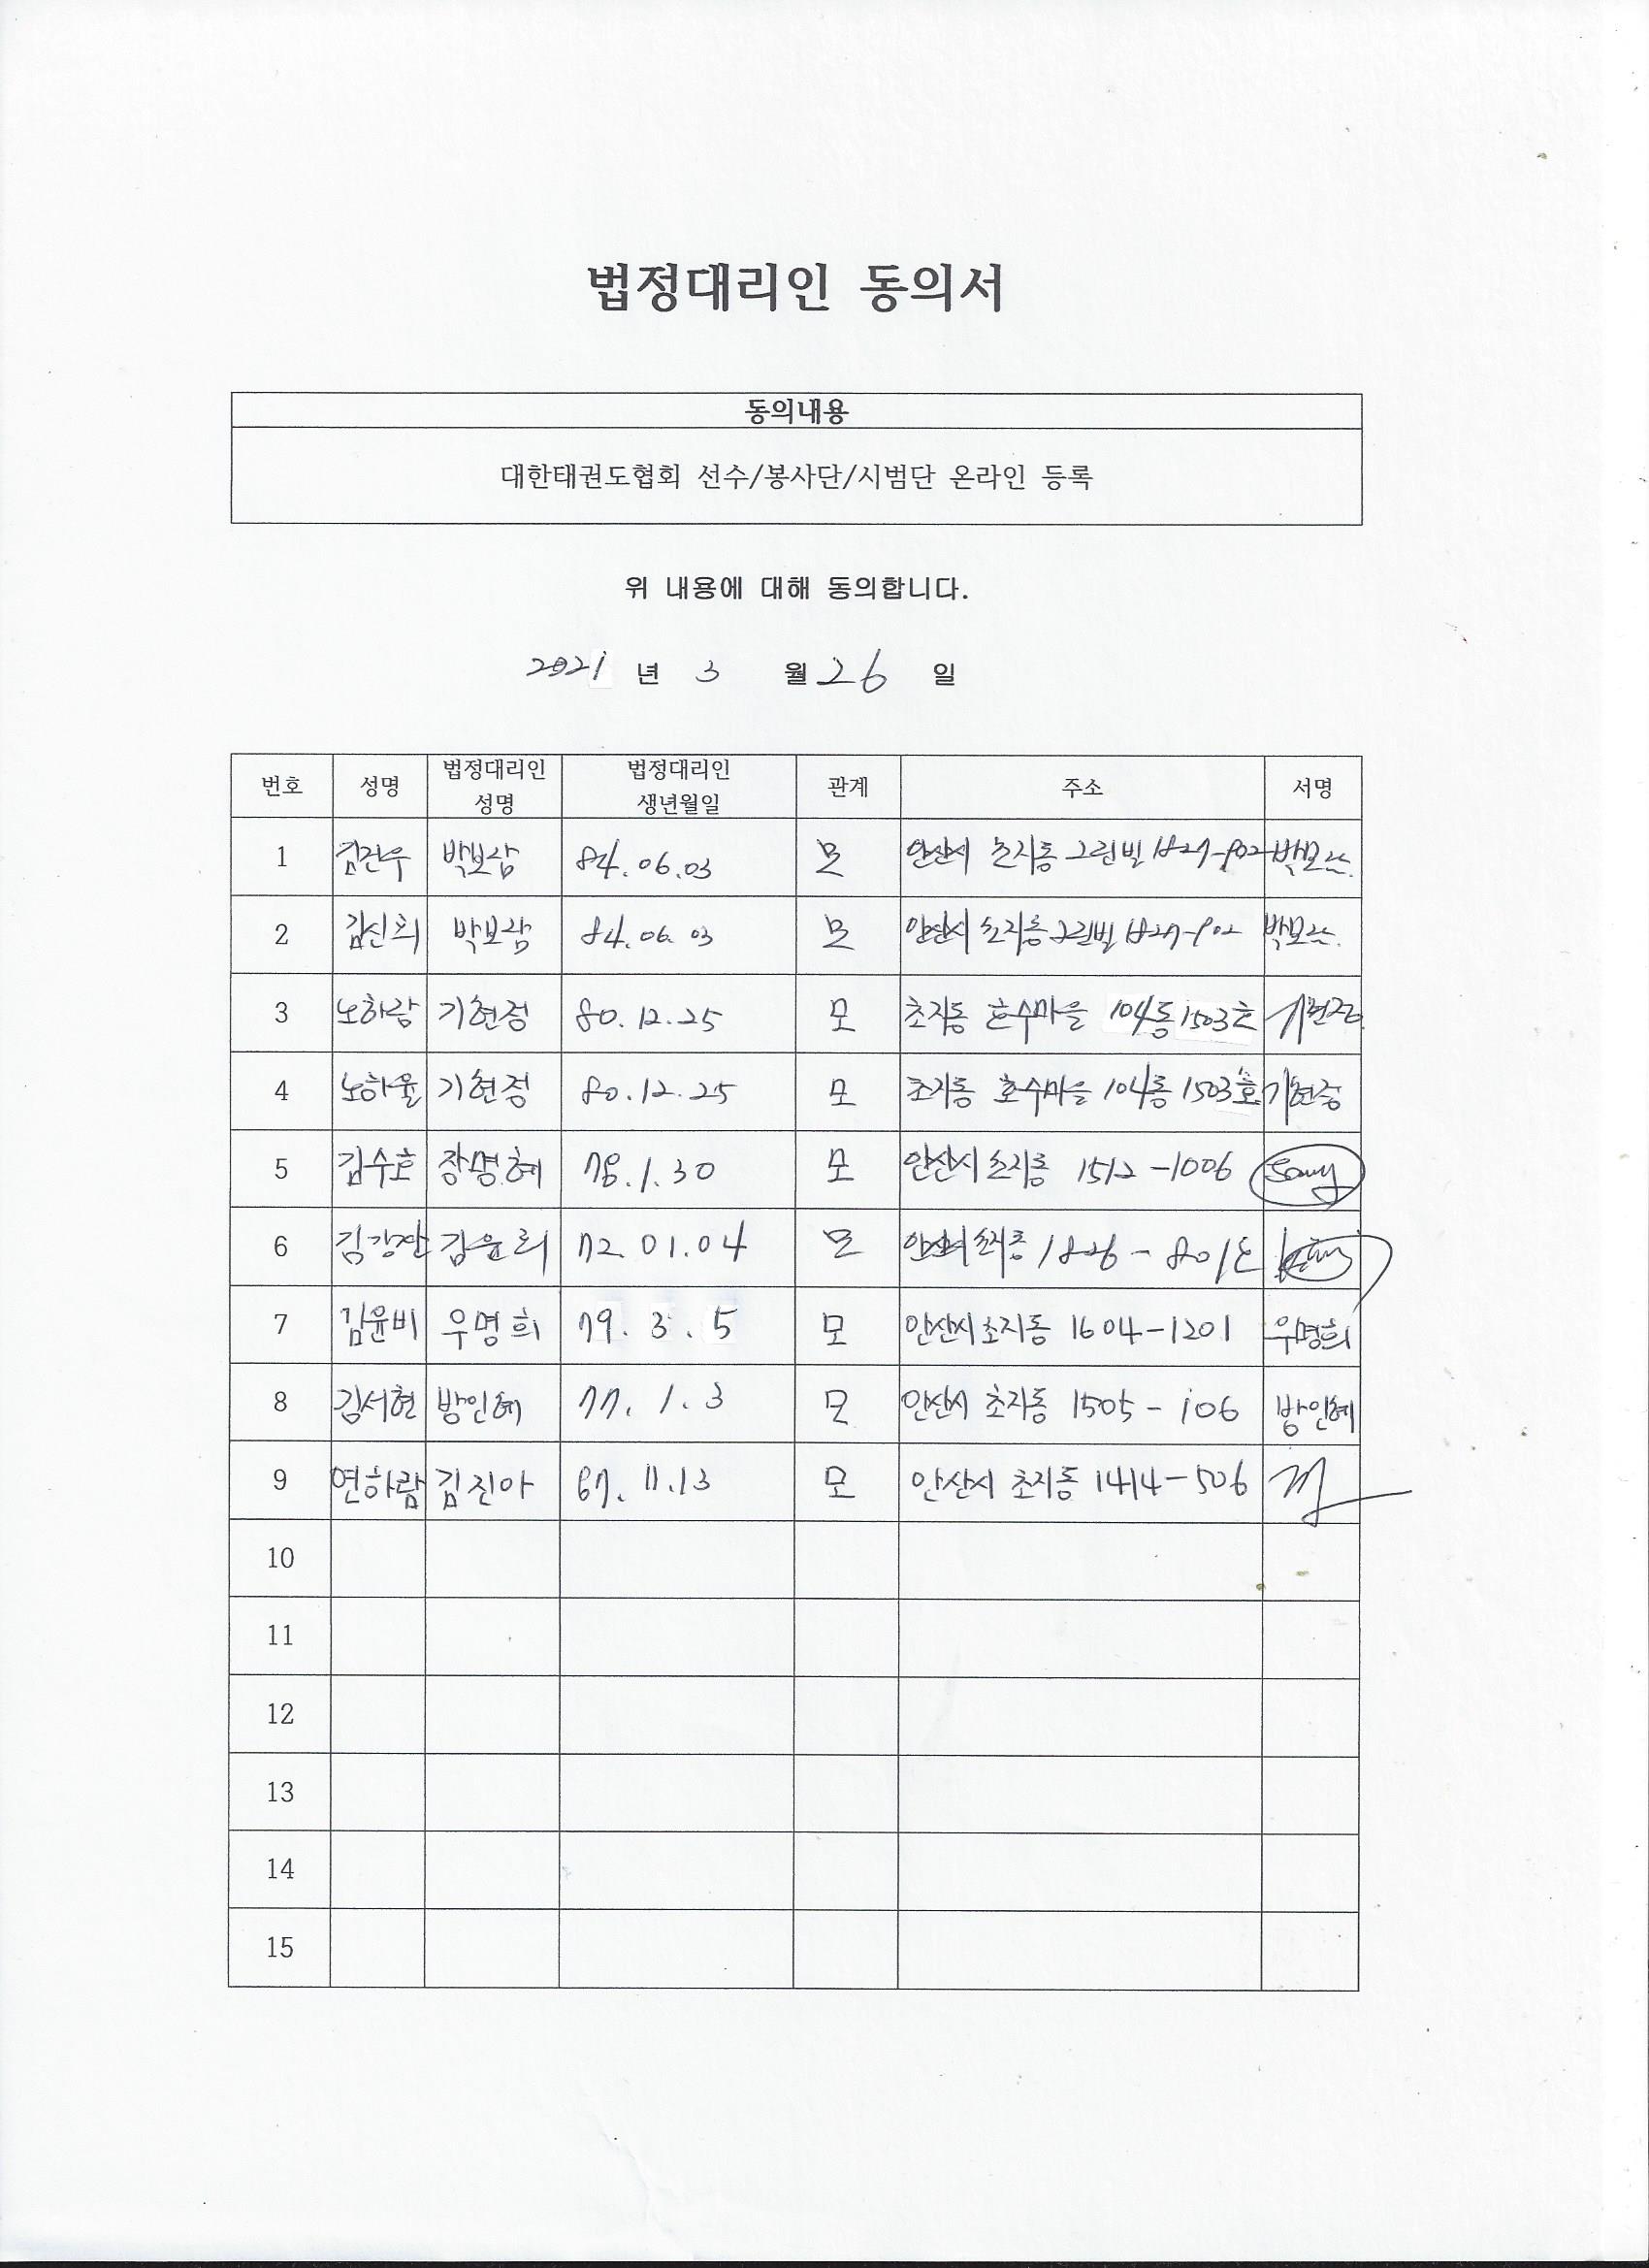 법정대리인 동의서
동의내용
대한태권도협회 선수/봉사단/시범단 온라인 등록
위 내용에 대해 동의합니다.
2021 년 3 월 26 일
번호 성명 법정대리인 성명 법정대리인 생년월일 관계 주소 서명
1 김건우 박보람 84.06.03 모 안산시 초지동 그린빌 1827-902 박보람
2 김신희 박보람 84.06.03 모 안산시 초지동 그린빌 1827-902 박보람
3 노하랑 기현정 80.12.25 모 초지동 호수마을 104동 1503호 기현정
4 노하율 기현정 80.12.25 모 초지동 호수마을 104동 1503호 기현정
5 김수호 장명혜 78.1.30 모 안산시 초지동 1512-1006
6 72.01.04 모 안산시 초지동 1826-801호
7 김윤비 우명희 79.3.5 모 안산시 초지동 1604-1201 우명희
8 김서현 방인혜 77.1.3 모 안산시 초지동 1505-106 방인혜
9 연하람 김진아 67.11.13 모 안산시 초지동 1414-506
10
11
12
13
14
15